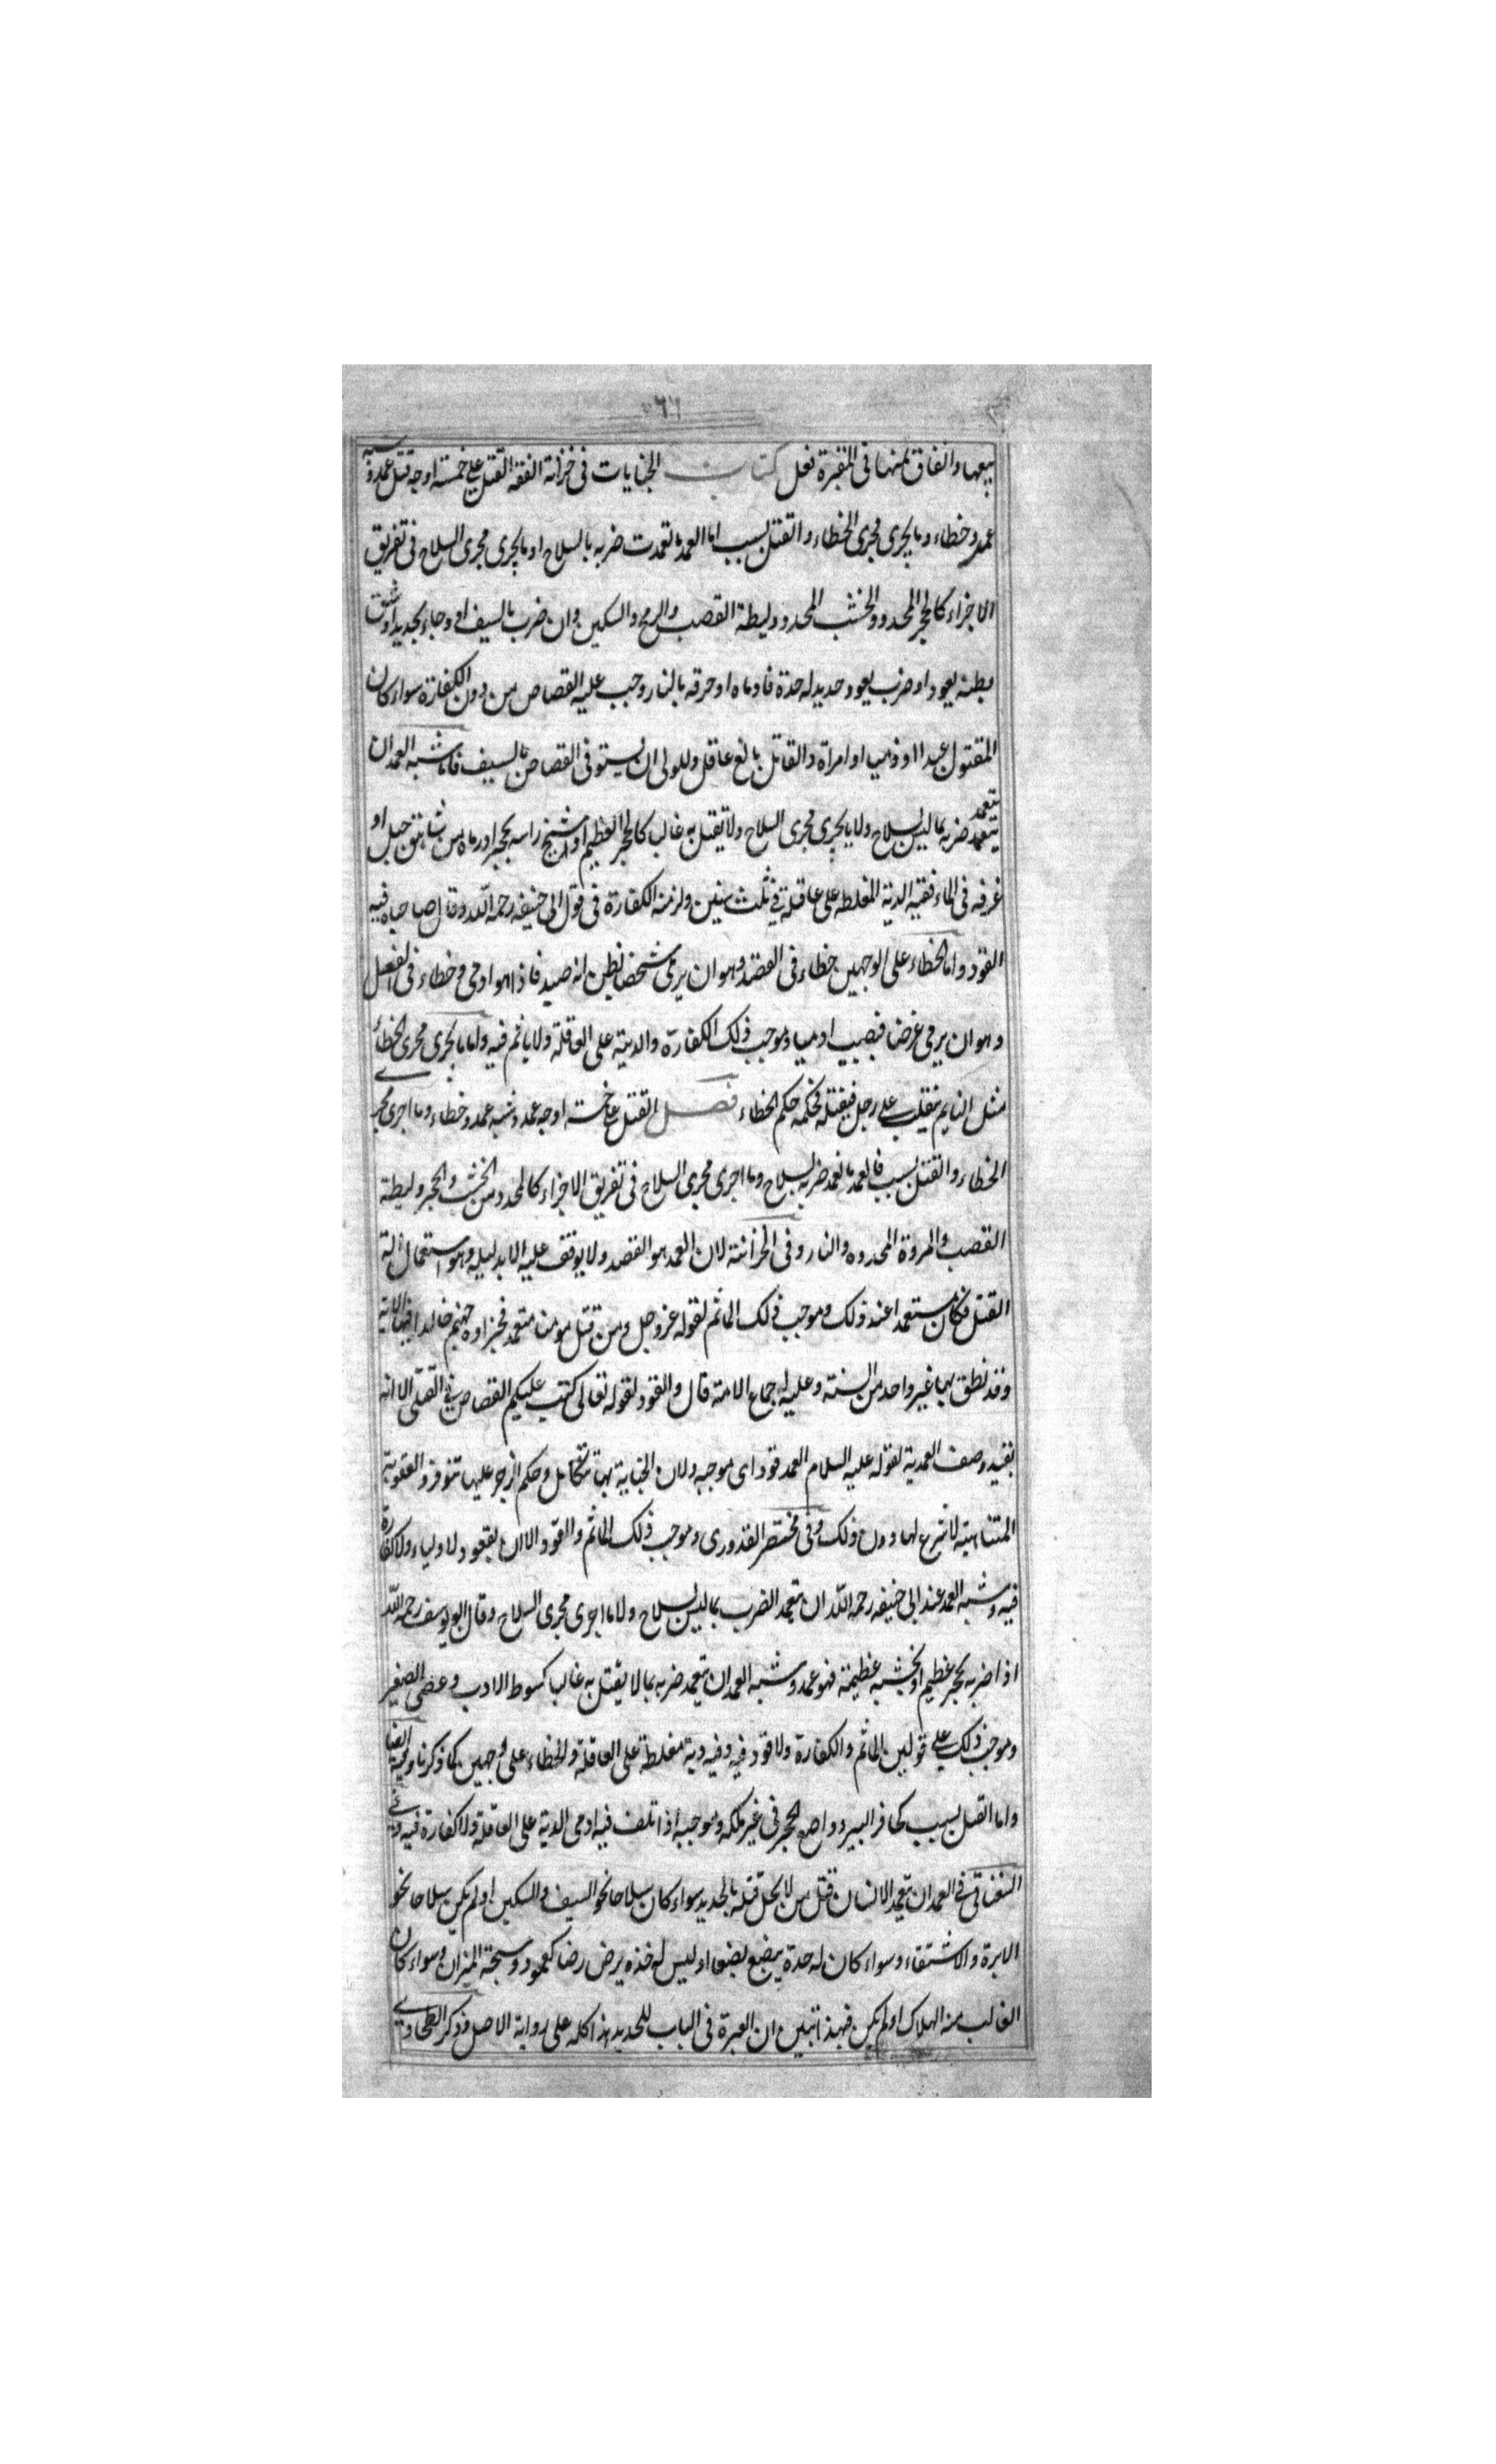 بيعها وانفاق ثمنها فى المقبرة نعل كتاب الجنايات فى خزانة الفقه القتل على خمسة اوجه قتل عمد وشبه
عمد وخطاء وما يجرى مجرى الخطاء والقتل بسبب اما العمد ما تعمدت ضربه بالسلاح او ما يجرى مجرى السلاح فى تفريق
الاجزاء كالحجر المحدد والخشب المحدد وليطة القصب والرمح والسكين وان ضرب بالسيف او وجاء بحديد او شق
بطنه بعود او ضرب بعود حديد له حدة فادماه او حرقه بالنار وجب عليه القصاص من دون الكفارة سواء كان
المقتول عبدا او ذميا او امراة والقاتل بالغ عاقل وللولى ان يستوفى القصاص بالسيف فاما شبه العمد ان
يتعمد ضربه بما ليس بسلاح ولا ما يجرى مجرى السلاح ولا يقتل به غالب كالحجر العظيم او شج راسه بحجر او رماه من شاهق جبل او
غرقه فى الماء ففيه الدية المغلظه على عاقلة فى ثلث سنين ولزمته الكفارة فى قول ابى حنيفه رحمه الله وقال صاحباه فيه
القود واما الخطاء على الوجهين خطاء فى القصد وهو ان يرمى شخصا يظن انه صيد فاذا هو ادمى وخطاء فى الفعل
وهو ان يرمى غرضا فيصيب ادميا وموجب ذلك الكفارة والدية على العاقلة ولا ياثم فيه واما ما يجرى مجرى الخطأ
مثل النايم ينقلب على رجل فيقتله فحكمه حكم الخطاء فصل القتل على خمسة اوجه عمد وشبه عمد وخطاء وما اجرى مجرى
الخطاء والقتل بسبب فالعمد ما تعمد ضربه بسلاح وما اجرى مجرى السلاح فى تفريق الاجزاء كالمحدد من الخشب والحجر وليطة
القصب والمروة المحدده والنار وفى الخزانة لان العمد هو القصد ولا يوقف عليه الا بدليله وهو استعمال الة
القتل فكان مستعمدا عند ذلك وموجب ذلك الماثم لقوله عز وجل ومن قتل مومنا متعمد فجزاوه جهنم خالدا فيها الاية
وقد نطق بهما غير واحد من السنة وعليه اجماع الامة قال والقود لقوله تعالى كتب عليكم القصاص فى القتلى الا انه
بقيد وصف العمدية لقوله عليه السلام العمد قود اى موجبه ولان الجناية بها تتكامل وحكم الزجر عليها تتوفر والعقوبة
المتناهية لا شرع لها دون ذلك وفى مختصر القدورى وموجب ذلك الماثم والقود الا ان يعفو دلاولياء ولا كفارة
فيه وشبه العمد عند ابى حنيفه رحمه الله ان يتعمد الضرب بما ليس بسلاح ولا ما اجرى مجرى السلاح وقال ابو يوسف رحمه الله
اذا ضربه بحجر عظيم او بخشبه عظيمة فهو عمد وشبه العمد ان يتعمد ضربه بما لا يقتل به غالبا كسوط الادب وعصى الصغير
وموجب ذلك على قولين الماثم والكفارة ولا قود فيه وفيه دية مغلظة على العاقلة والخطاء على وجهين كما ذكرنا
واما القتل بسبب كحافر البير وواضع الحجر فى غير ملكه وموجبه اذا تلف فيه ادمى الدية على العاقلة ولا كفارة فيه وفى
السغناقى فى العمد ان يتعمد الانسان قتل من لا يحل قتله بالحديد سواء كان سلاحا نحو السيف والسكين او لم يكن سلاحا نحو
الابرة والاشتقاء وسواء كان له حدة يبضع بضعا او ليس له حده يرض رضا كعمود وسنجة الميزان وسواء كان
الغالب منه الهلاك او لم يكن فهذا تبين ان العبرة فى الباب للحديد هذا كله على رواية الاصل وذكر الطحاوى